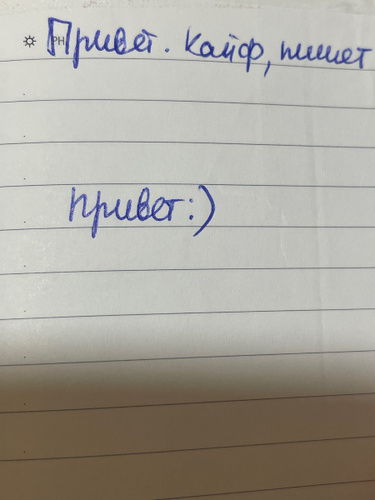 PH Привет. Кайф, пишет
привет:)